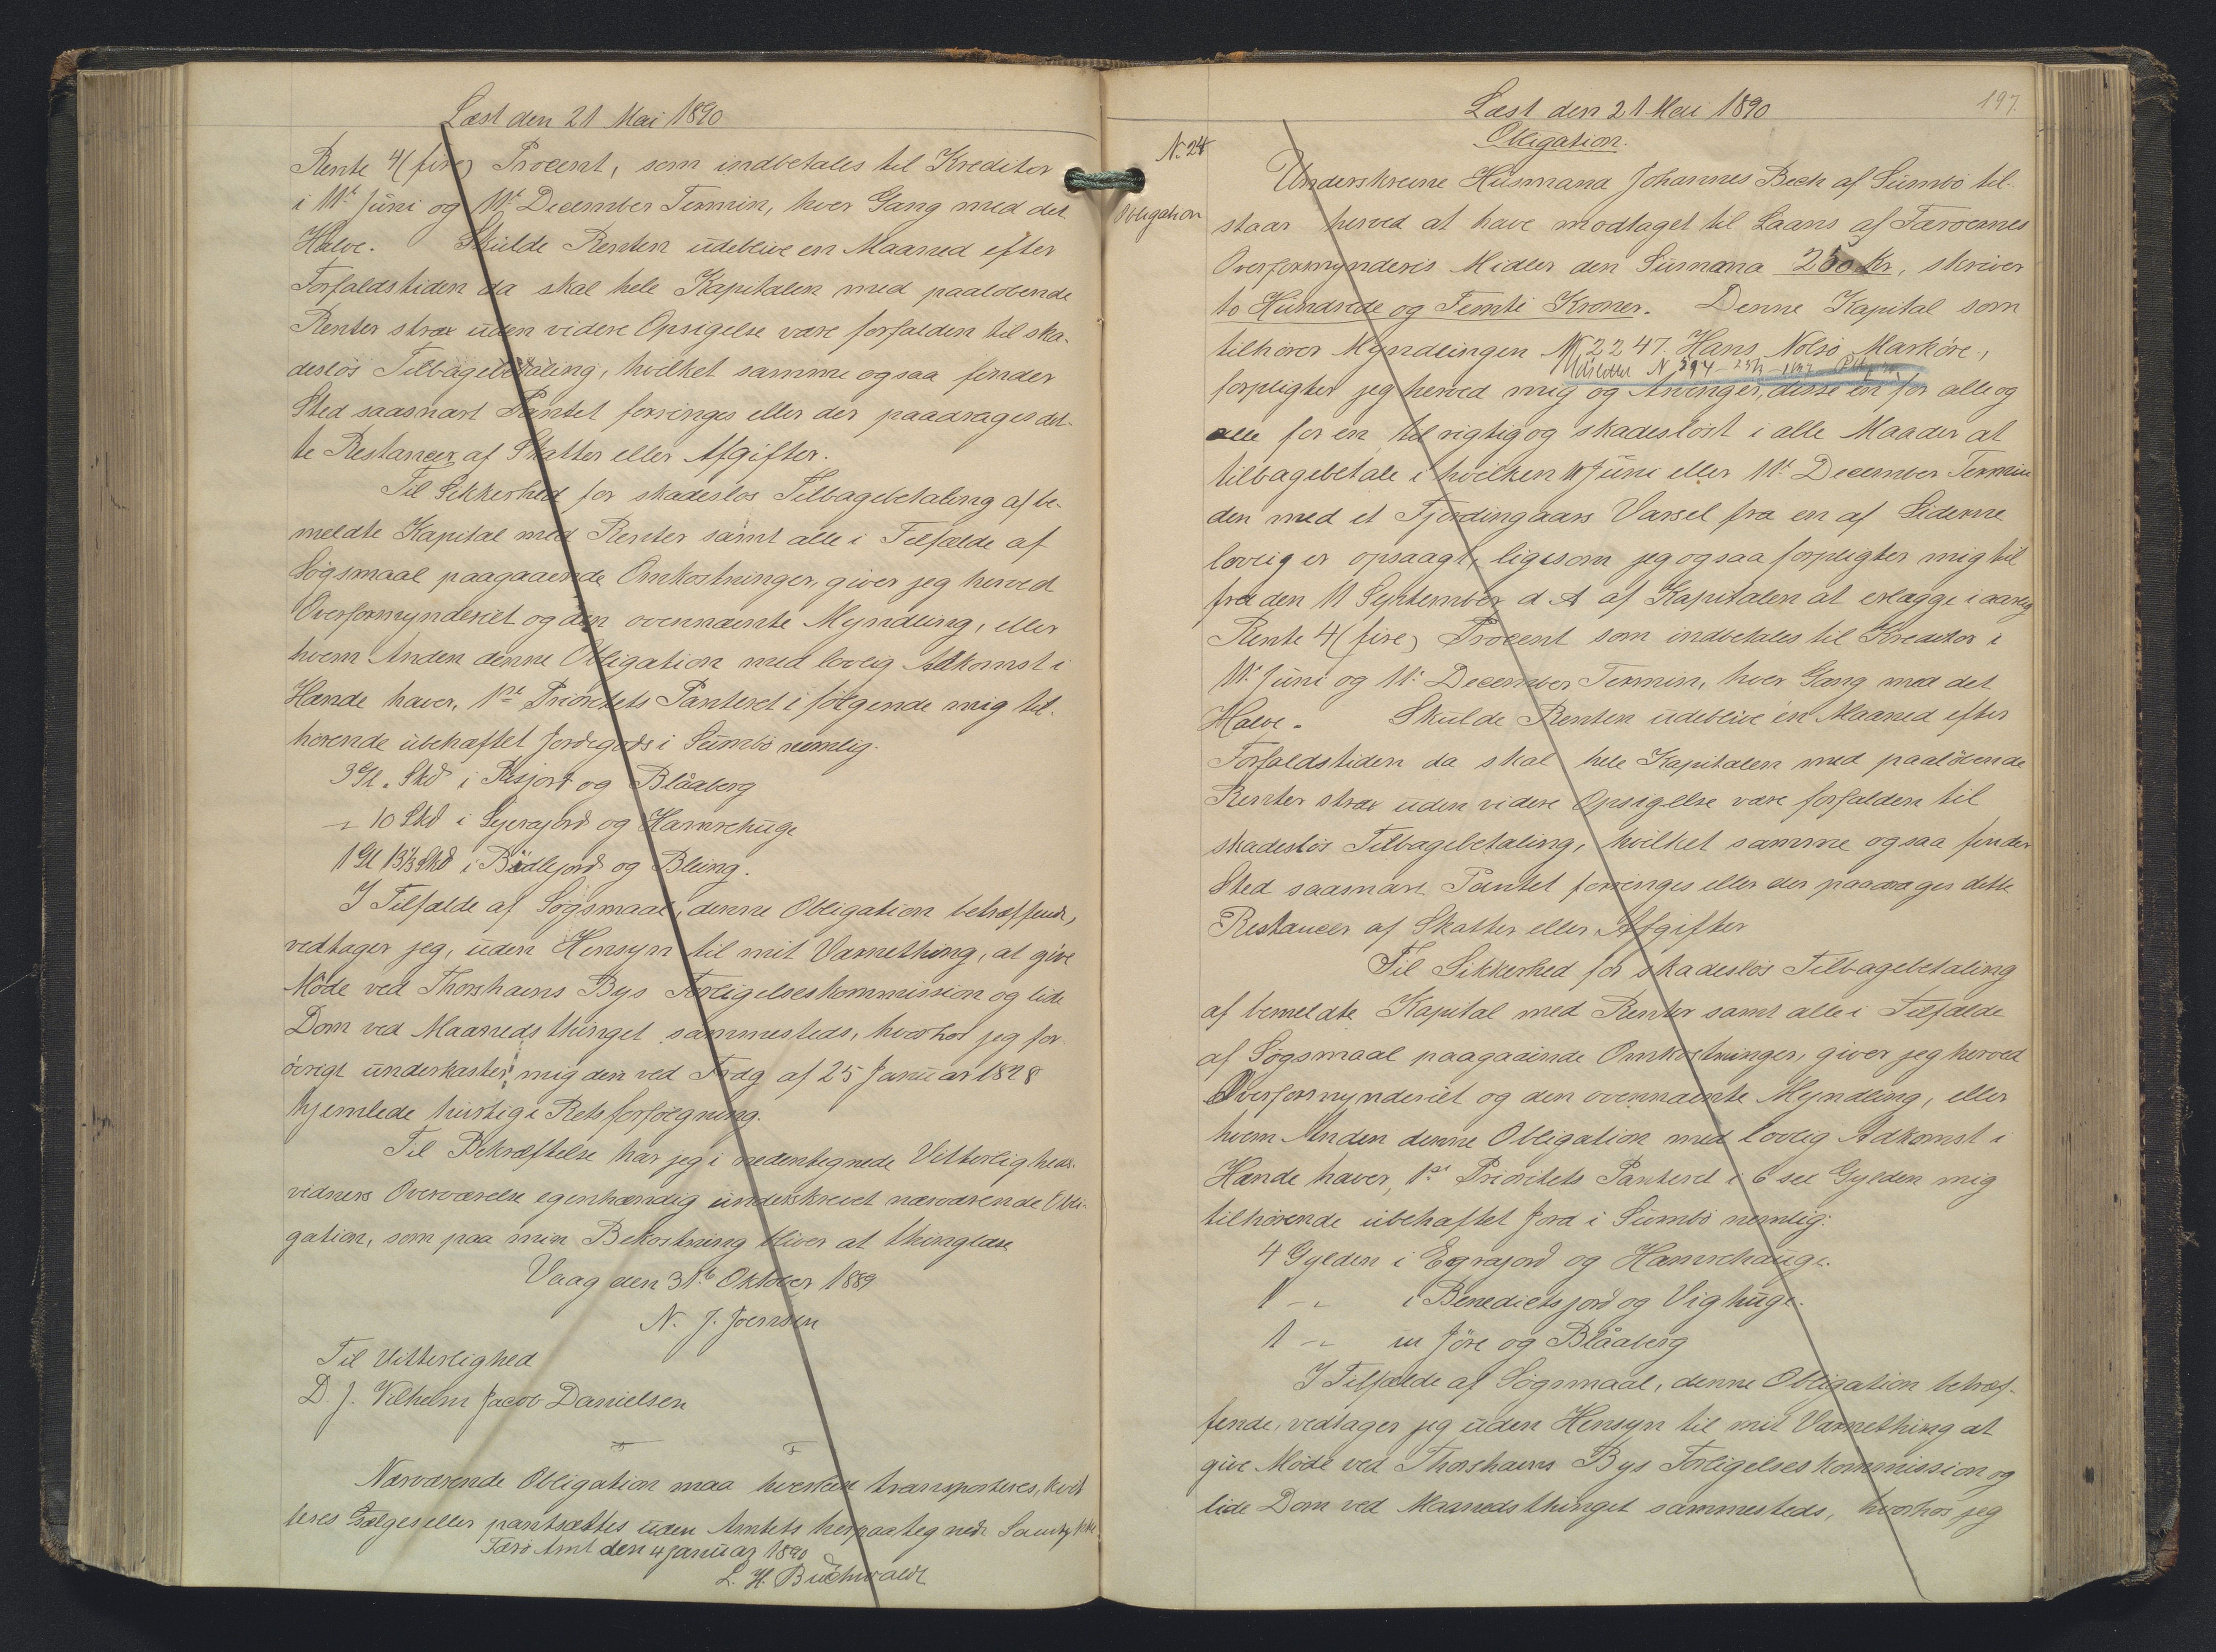 Læst den 21 Mai 1890
Rente 4 (fire) Procent, som indbetales til Kreditor
i 11te Juni og 11te December Termin, hver Gang med det
Halve. Skulde Renten udeblive en Maaned efter
Forfaldstiden da skal hele Kapitalen med paaløbende
Renter strax uden videre Opsigelse være forfalden til ska-
desløs Tilbagebetaling, hvilket samme ogsaa finder
Sted saasnart Pantet forringes eller der paadrages det-
te Restancer af Skatter eller Afgifter.
Til Sikkerhed for skadesløs Tilbagebetaling af be-
meldte Kapital med Renter samt alle i Tilfælde af
Søgsmaal paagaaende Omkostninger, giver jeg herved
Overformynderiet og den ovennævnte Myndling, eller
hvem Anden denne Obligation med lovlig Adkomst i
Hænde haver, 1ste Prioritets Panteret i følgende mig til-
hørende ubehæftet Jordegods i Sumbø nemlig.
3 Gl. Skd i Resjort og Blåaberg
" 10 Skd i Lyerajord og Hamrehuge
1 Gl 13⅓ Skd i Bødlejord og Bleing.
I Tilfælde af Søgsmaal, denne Obligation betræffende,
vedtager jeg, uden Hensyn til mit Værnething, at give
Møde ved Thorshavns Bys Forligelseskommission og lide
Dom ved Maanedsthinget sammesteds, hvorhos jeg for
øvrigt underkaster mig den ved Frdg af 25 Januar 1828
hjemlede hurtige Retsforfølgning.
Til Bekræftelse har jeg i nedentegnede Vitterligheds-
vidners Overværelse egenhændig underskrevet nærværende Obli-
gation, som paa min Bekostning bliver at thinglæse
Vaag den 31te Oktober 1889
N. J. Joensen
Til Vitterlighed
D. J. Vilhelm Jacob Danielsen
Nærværende Obligation maa hverken transporteres, kvit
teres Sælges eller pantsættes uden Amtets herpaategnede Samtykke
Færø Amt den 4 Januar 1890
L. H. Buchwaldt
Læst den 21 Mai 1890
197
Obligation.
No 24
Obligation
Underskrevne Husmand Johannes Bech af Sumbø til-
staar herved at have modtaget til Laans af Færøernes
Overformynderis Midler den Summa 250 Kr, skriver
to Hundrede og Femti Kroner. Denne Kapital som
tilhører Myndlingen No 2247. Hans Nolsø Markøre,
Udslettet N
forpligter jeg herved mig og Arvinger, disse en for alle og
alle for en til rigtig og skadesløst i alle Maader at
tilbagebetale i hvilken 11 Juni eller 11te December Termin
den med et Fjerdingaars Varsel fra en af Siderne
lovlig er opsaagt, ligesom jeg ogsaa forpligter mig til
fra den 11 September d A af Kapitalen at erlægge i aarlig
Rente 4 (fire) Procent som indbetales til Kreditor i
11te Juni og 11te December Termin, hver Gang med det
Halve. Skulde Renten udeblive en Maaned efter
Forfaldstiden da skal hele Kapitalen med paaløbende
Renter strax uden videre Opsigelse være forfalden til
skadesløs Tilbagebetaling, hvilket samme ogsaa finder
Sted saasnart Pantet forringes eller der paadrages dette
Restancer af Skatter eller Afgifter
Til Sikkerhed for skadesløs Tilbagebetaling
af bemeldte Kapital med Renter samt alle i Tilfælde
af Søgsmaal paagaaende Omkostninger, giver jeg herved
Overformynderiet og den ovennævnte Myndling, eller
hvem Anden denne Obligation med lovlig Adkomst i
Hænde haver, 1ste Prioritets Panteret i 6 sex Gylden mig
tilhørende ubehæftet Jord i Sumbø nemlig:
4 Gylden i Egrajord og Hamrehauge.
1 " i Benedictsjord og Vighuge.
1 " Jøre og Blåaberg
I Tilfælde af Søgsmaal, denne Obligation betræf-
fende, vedtager jeg uden Hensyn til mit Værnething at
give Møde ved Thorshavns Bys Forligelseskommission og
lide Dom ved Maanedsthinget sammesteds, hvorhos jeg